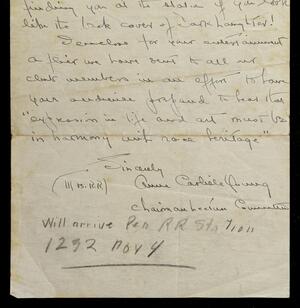 finding you at the station if you look
like the back cover of Dark Laughter!
Enclosed for your entertainment
a flier we have sent to all our
club members in an effort to have
your audience prepared to hear that
"expression in life and art must be
in harmony with race heritage"
Sincerely
Anne Carlisle
Chairman Lecture Committee
Will arrive Pen RR Sta
1292 Nov 4